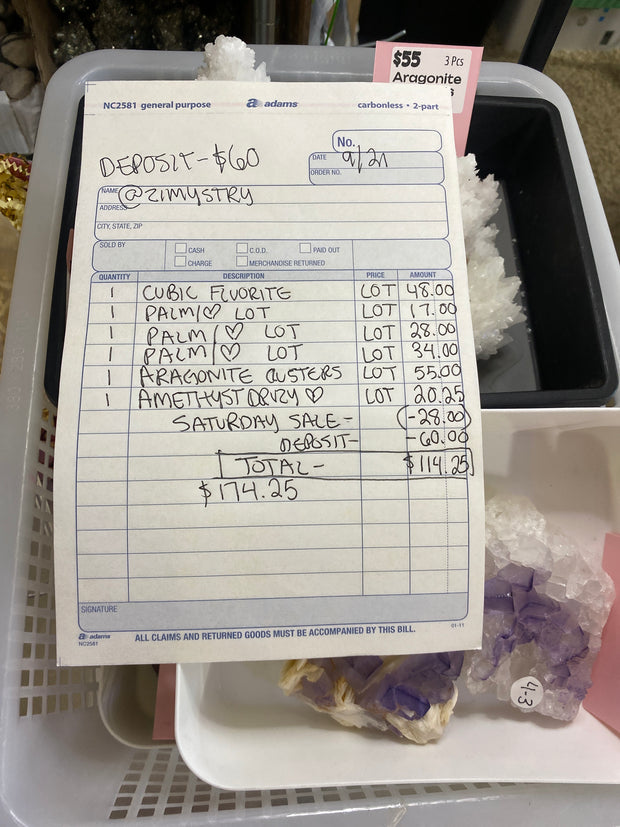 $55 3 Pcs
Aragonite
s
NC2581 general purpose adams carbonless • 2-part
No.
DEPOSIT - $60
DATE 9/21
ORDER NO.
NAME @ZIMYSTRY
ADDRESS
CITY, STATE, ZIP
SOLD BY CASH C.O.D. PAID OUT
CHARGE MERCHANDISE RETURNED
QUANTITY DESCRIPTION PRICE AMOUNT
1 CUBIC FLUORITE LOT 48.00
1 PALM/♡ LOT LOT 17.00
1 PALM/♡ LOT LOT 28.00
1 PALM/♡ LOT LOT 34.00
1 ARAGONITE CLUSTERS LOT 55.00
1 AMETHYST DRUZY ♡ LOT 20.25
SATURDAY SALE - -28.00
DEPOSIT - -60.00
TOTAL - $114.25
$174.25
SIGNATURE
adams
NC2581
ALL CLAIMS AND RETURNED GOODS MUST BE ACCOMPANIED BY THIS BILL.
01-11
4-3